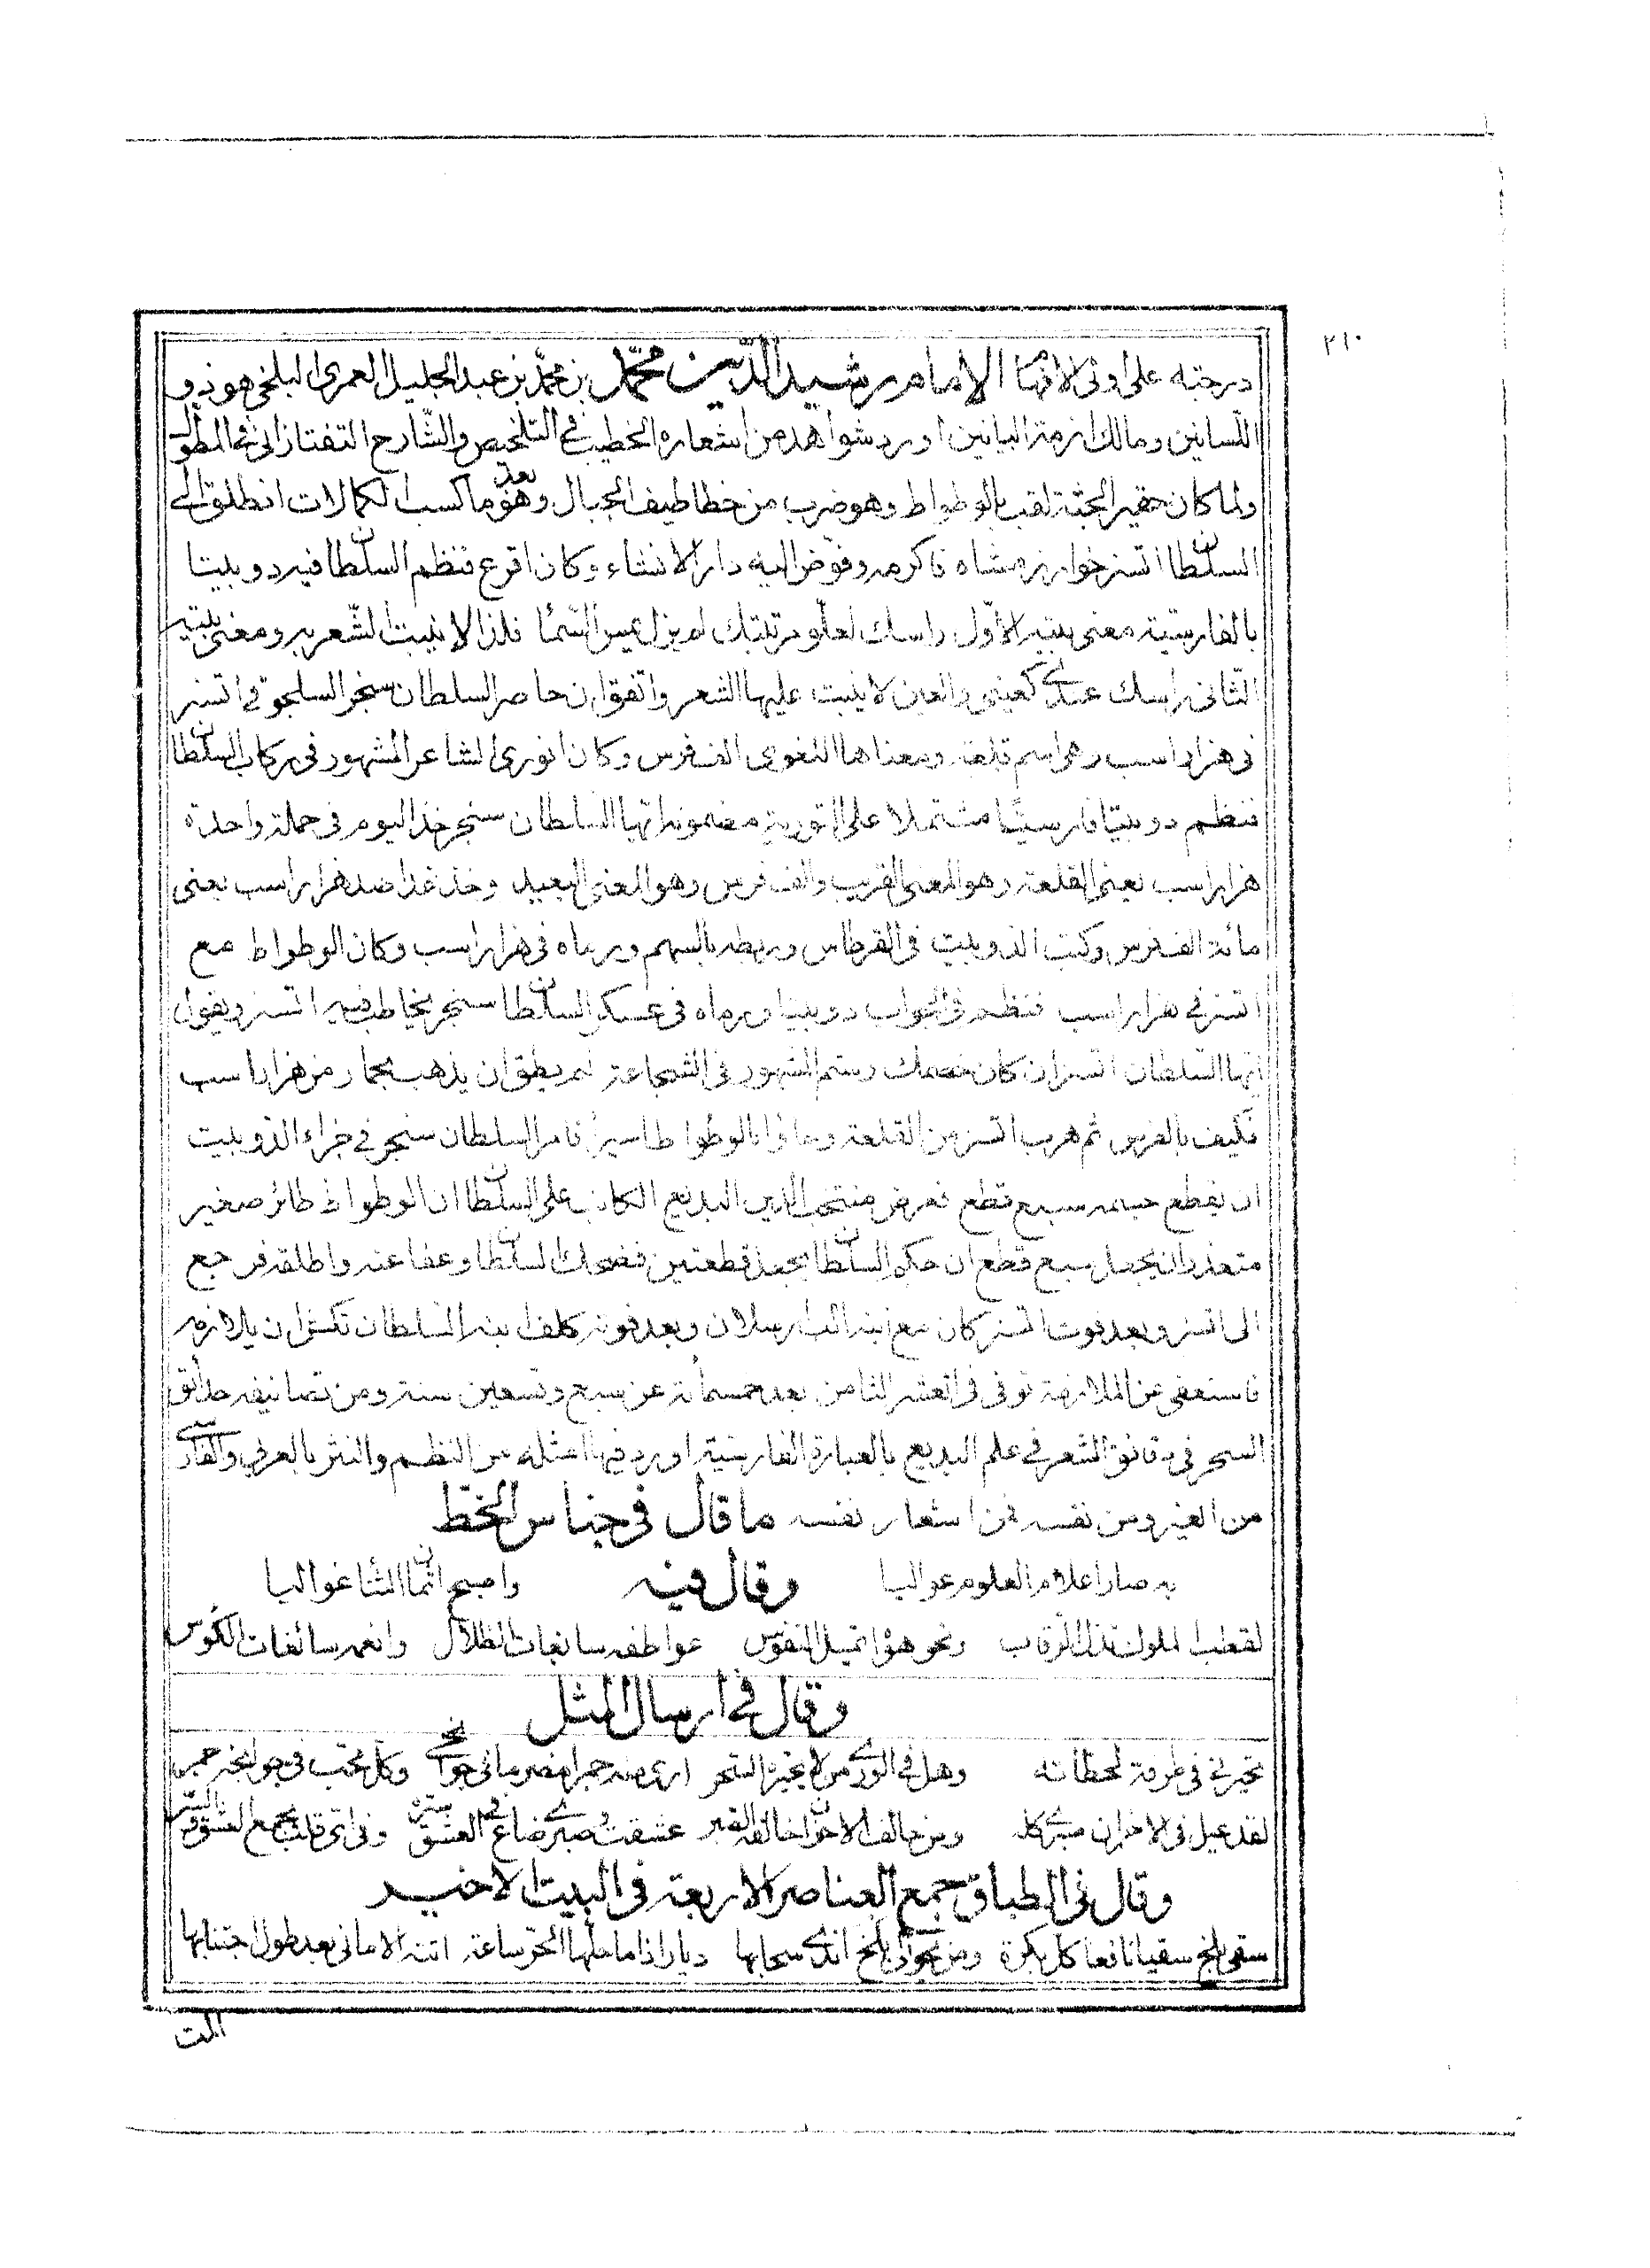 ٢١٠
درجته على اوفى الافهام الامام رشيد الدّين محمّد بن محمّد بن عبد الجليل العمرى البلخى هو ذو
اللّسانين ومالك ازمة البيانين اورد شواهد من اشعاره الخطيب فى التلخيص والشّارح التفتازانى فى المطوّل
ولما كان حقير الجثة لقب بالوطواط وهو ضرب من خطاطيف الجبال وهو بعد ما كسب الكمالات انطلق الى
السلطان اتسز خوارزمشاه فاكرمه وفوّض اليه دار الانشاء وكان اقرع فنظم السلطان فيه دوبيتا
بالفارسيّة معنى بيته الاوّل راسك لعلّو مرتبتك لم يزل يمس السّما فلذا لا ينبت الشّعر به ومعنى بيته
الثانى راسك عندى كعينى والعين لا ينبت عليها الشعر واتفق ان حاصر السلطان سنجر السلجوقى اتسز
فى هزار اسب وهى اسم قلعة ومعناها اللغوى الف فرس وكان انورى الشاعر المشهور فى ركاب السلطان
فنظم دوبيتا فارسيًّا مشتملا على التورية مضمونه ايّها السلطان سنجر خذ اليوم فى حملة واحدة
هزار اسب يعنى القلعة وهو المعنى القريب والف فرس وهو المعنى البعيد وخذ غدا صد هزار اسب يعنى
مائة الف فرس وكتب الدوبيت فى القرطاس وربطه بالسهم ورماه فى هزار اسب وكان الوطواط مع
اتسز فى هزار اسب فنظم فى الجواب دوبيتا ورماه فى عسكر السلطان سنجر يخاطب فيه اتسز ويقول
ايّها السّلطان اتسز ان كان خصمك رستم المشهور فى الشجاعة لم يطق ان يذهب بحمار من هزار اسب
فكيف بالفرس ثم هرب اتسز من القلعة وجاؤا بالوطواط اسيرا فامر السلطان سنجر فى جزاء الدوبيت
ان يقطع جسمه سبع قطع فعرض منتجب الدين البديع الكاتب على السلطان ان الوطواط طائر صغير
متعذر ان يجعل سبع قطع ان حكم السلطان يجعل قطعتين فضحك السلطان وعفا عنه واطلقه فرجع
الى اتسز وبعد فوت اتسز كان مع ابنه الب ارسلان وبعد فوته كلف ابنه السلطان تكش ان يلازمه
فاستعفى عن الملازمة توفى فى العشر الثامن بعد خمسمائة عن سبع وتسعين سنة ومن تصانيفه حدائق
السحر فى دقائق الشعر فى علم البديع بالعبارة الفارسية اورد فيها امثلة من النظم والنثر بالعربى والفارسى
من الغير ومن نفسه فمن اشعار نفسه ما قال فى جناس الخطّ
به صار اعلام العلوم عواليا واصبح اثمان الثنا غواليا
وقال فيه
لقطب الملوك تذل الرقاب ونحو هواه تميل النفوس عواطفه سابغات الظلال وانعمه سائغات الكؤس
وقال فى ارسال المثل
تحيرنى فى طرفه لحظاته وهل فى الورى من لا يحيره السحر ارى منه جمرا مضرما فى جوانحى وكل محب فى جوانحه جمر
لقد عيل فى الاحزان صبرى كله ومن حالف الاحزان خالفه الصبر عشقت وصبرى ضاع فى العشق وفى اى قلب يجمع العشق والستر
وقال فى الطباق جمع العناصر الاربعة فى البيت الاخير
سقى بلخ سقيانا نافعا كل بكرة ديار اذا ما حلها الحر ساعة اتته الامانى بعد طول اجتنابها